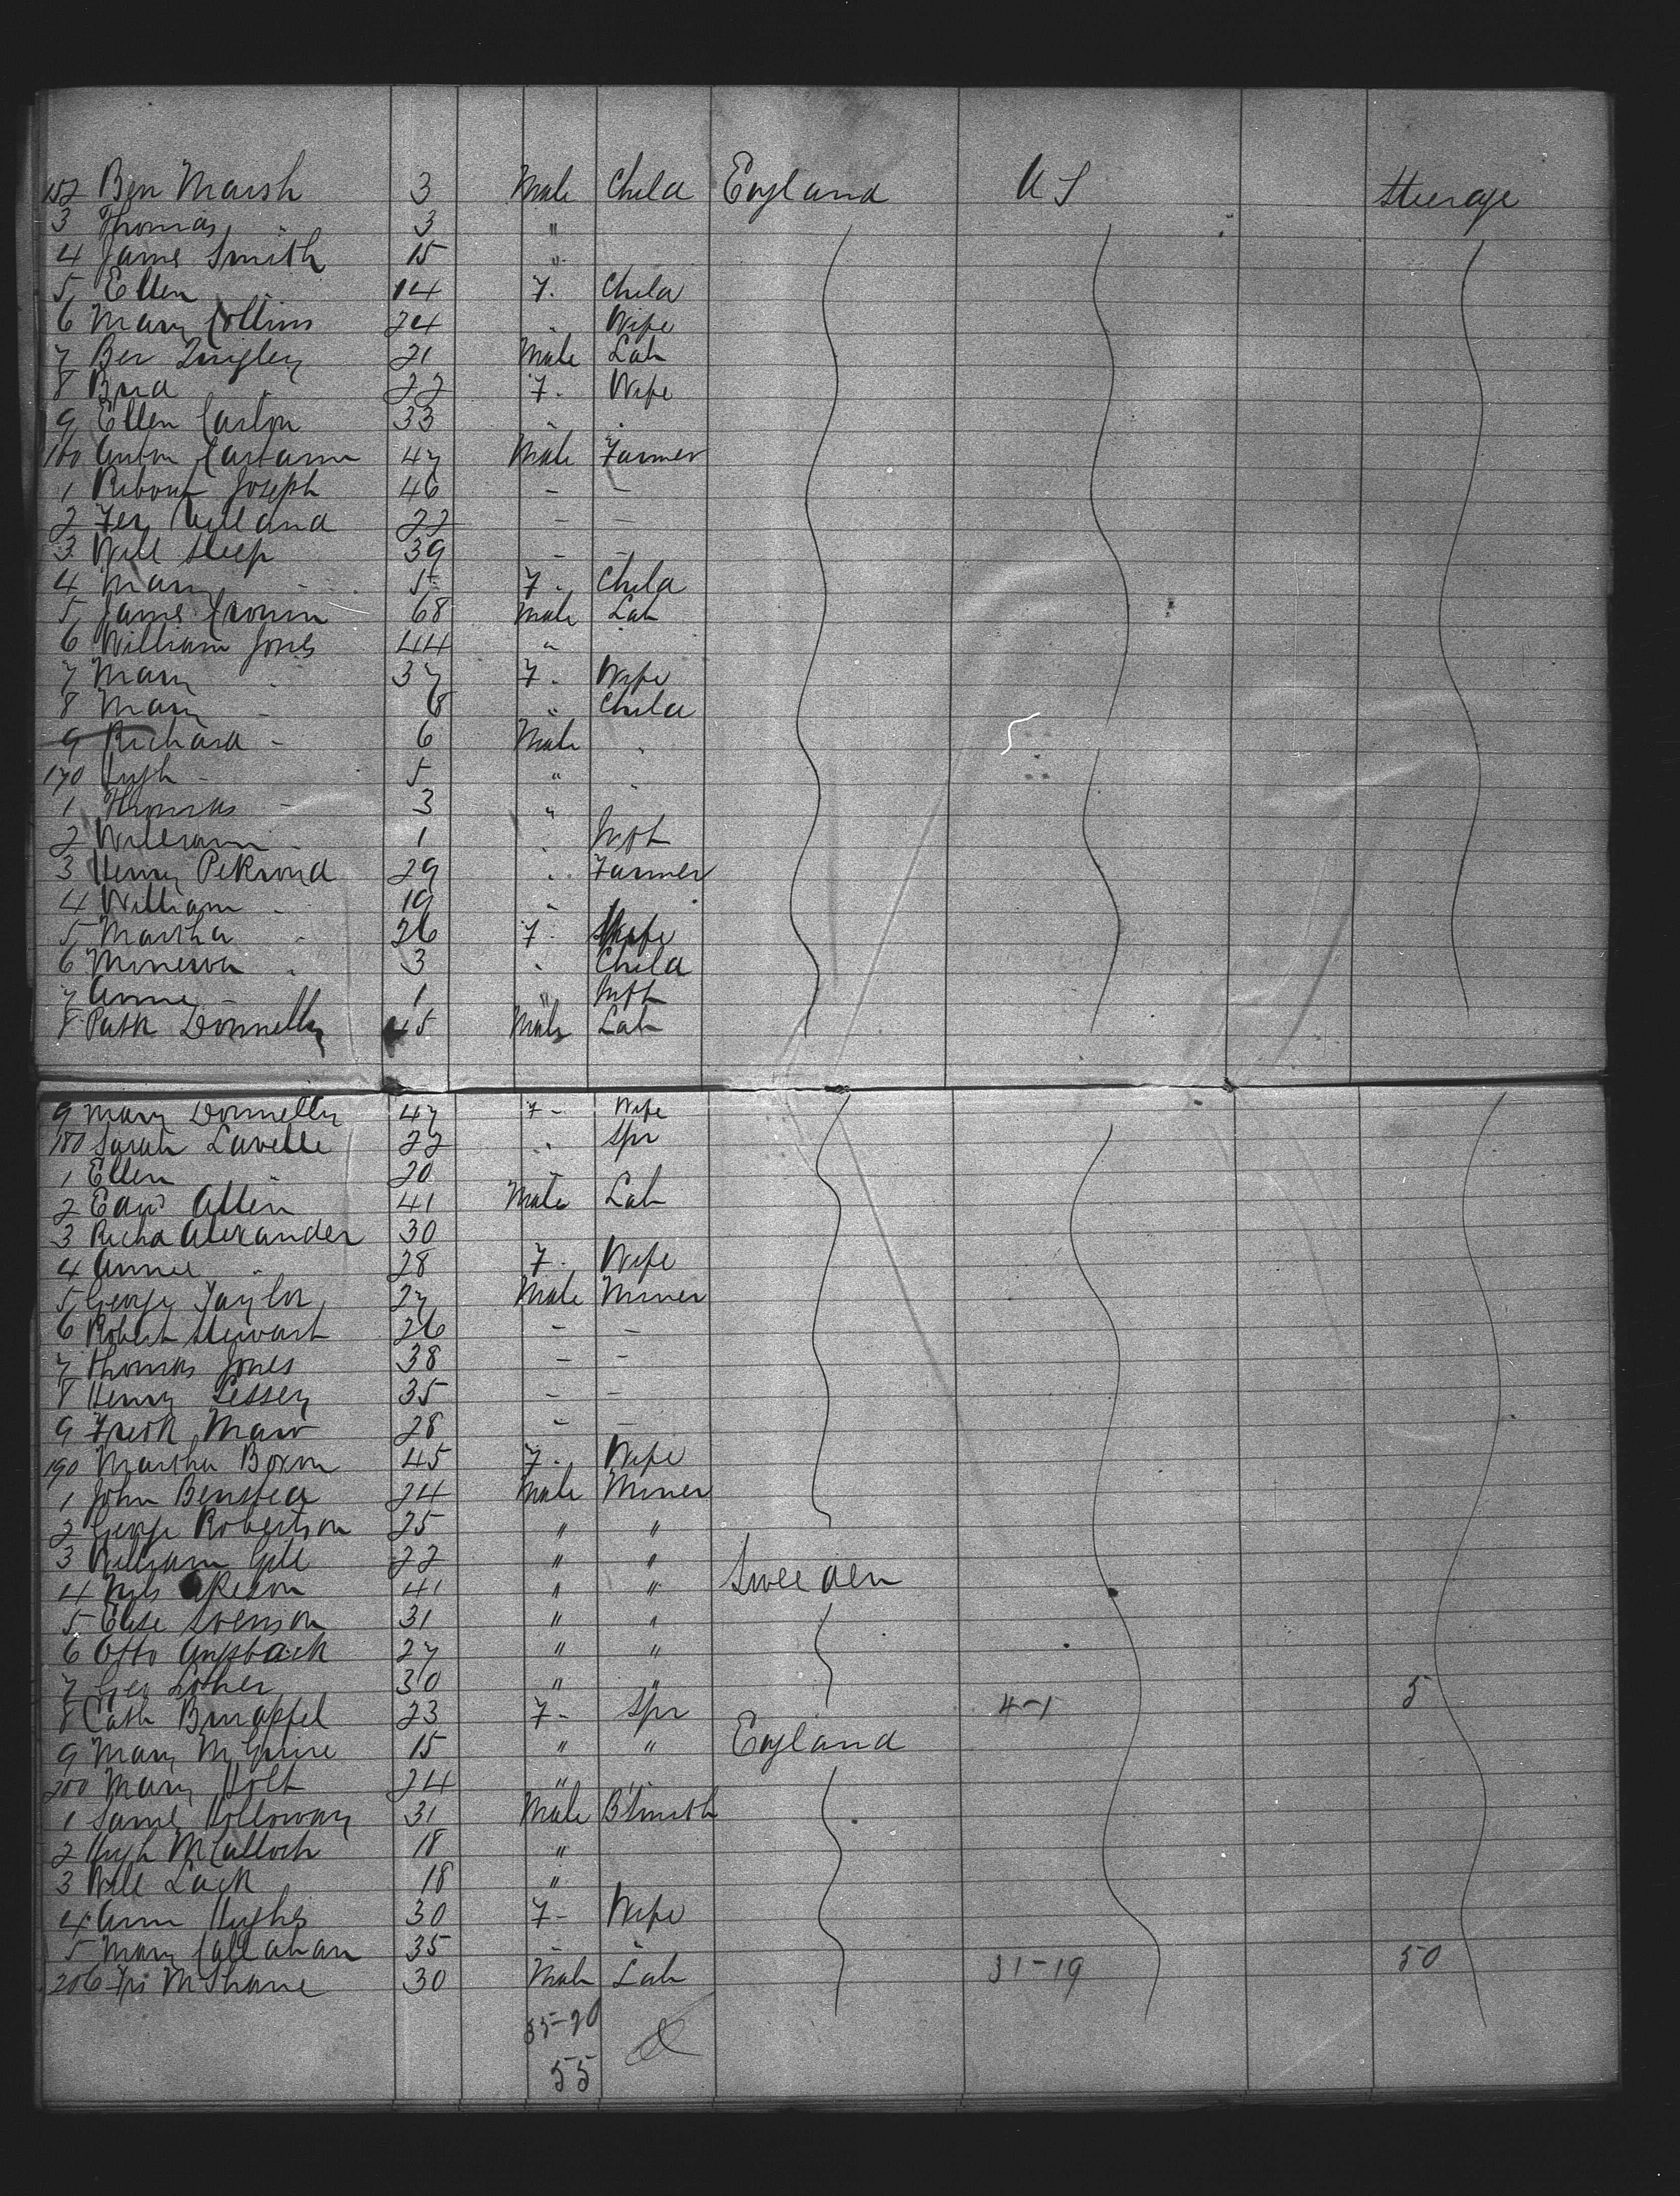 152 Ben Marsh 3 Male Child England U S Steerage
3 Thomas " 3 "
4 James Smith 15 "
5 Ellen " 14 F. Child
6 Mary Collins 24 . Wife
7 Ben Quigley 21 Male Lab
8 Brid 22 F. Wife
9 Ellen Carton 33 " "
160 Anton 47 Male Farmer
1 Joseph 46 - -
2 22 - -
3 Will Sleep 39 - -
4 Mary - 5 F. Child
5 James Cronin 68 Male Lab
6 William Jones 44 "
7 Mary " 37 F. Wife
8 Mary - 8 " Child
9 Richard - 6 Male "
170 Hugh - 5 " "
1 Thomas - 3 "
2 William - 1 . Inft
3 Henry 29 . Farmer
4 William - 19 "
5 Martha - 26 F. Wife
6 Minerva . 3 . Child
7 Annie - 1 " Inft
8 Patk Donnelly 45 Male Lab
9 Mary Donnelly 47 F - Wife
180 Sarah Lavelle 22 " Spr
1 Ellen - 20 -
2 Edwd Allen 41 Male Lab
3 Richd Alexander 30
4 Annie " 28 F. Wife
5 George Taylor 27 Male Miner
6 Robert Stewart 26 - -
7 Thomas Jones 38 - -
8 Henry Lessey 35 - -
9 Fredk Maw 28 - -
190 Martha 45 F. Wife
1 John Benstea 24 Male Miner
2 George Robertson 25 " "
3 William Gill 22 " "
4 Nils 41 " " Sweeden
5 Svenson 31 " "
6 Otto 27 " "
7 Geo Lother 30 " "
8 Cath 23 F - Spr 4-1 5
9 Mary McGuire 15 " " England
200 Mary Holt 24 " "
1 Saml Holloway 31 Male B'Smith
2 Hugh McCulloch 18 "
3 Will Lack 18 "
4 Ann Hughes 30 F - Wife
5 Mary Callahan 35 - -
206 McShane 30 Male Lab 31-19 50
35-20
55